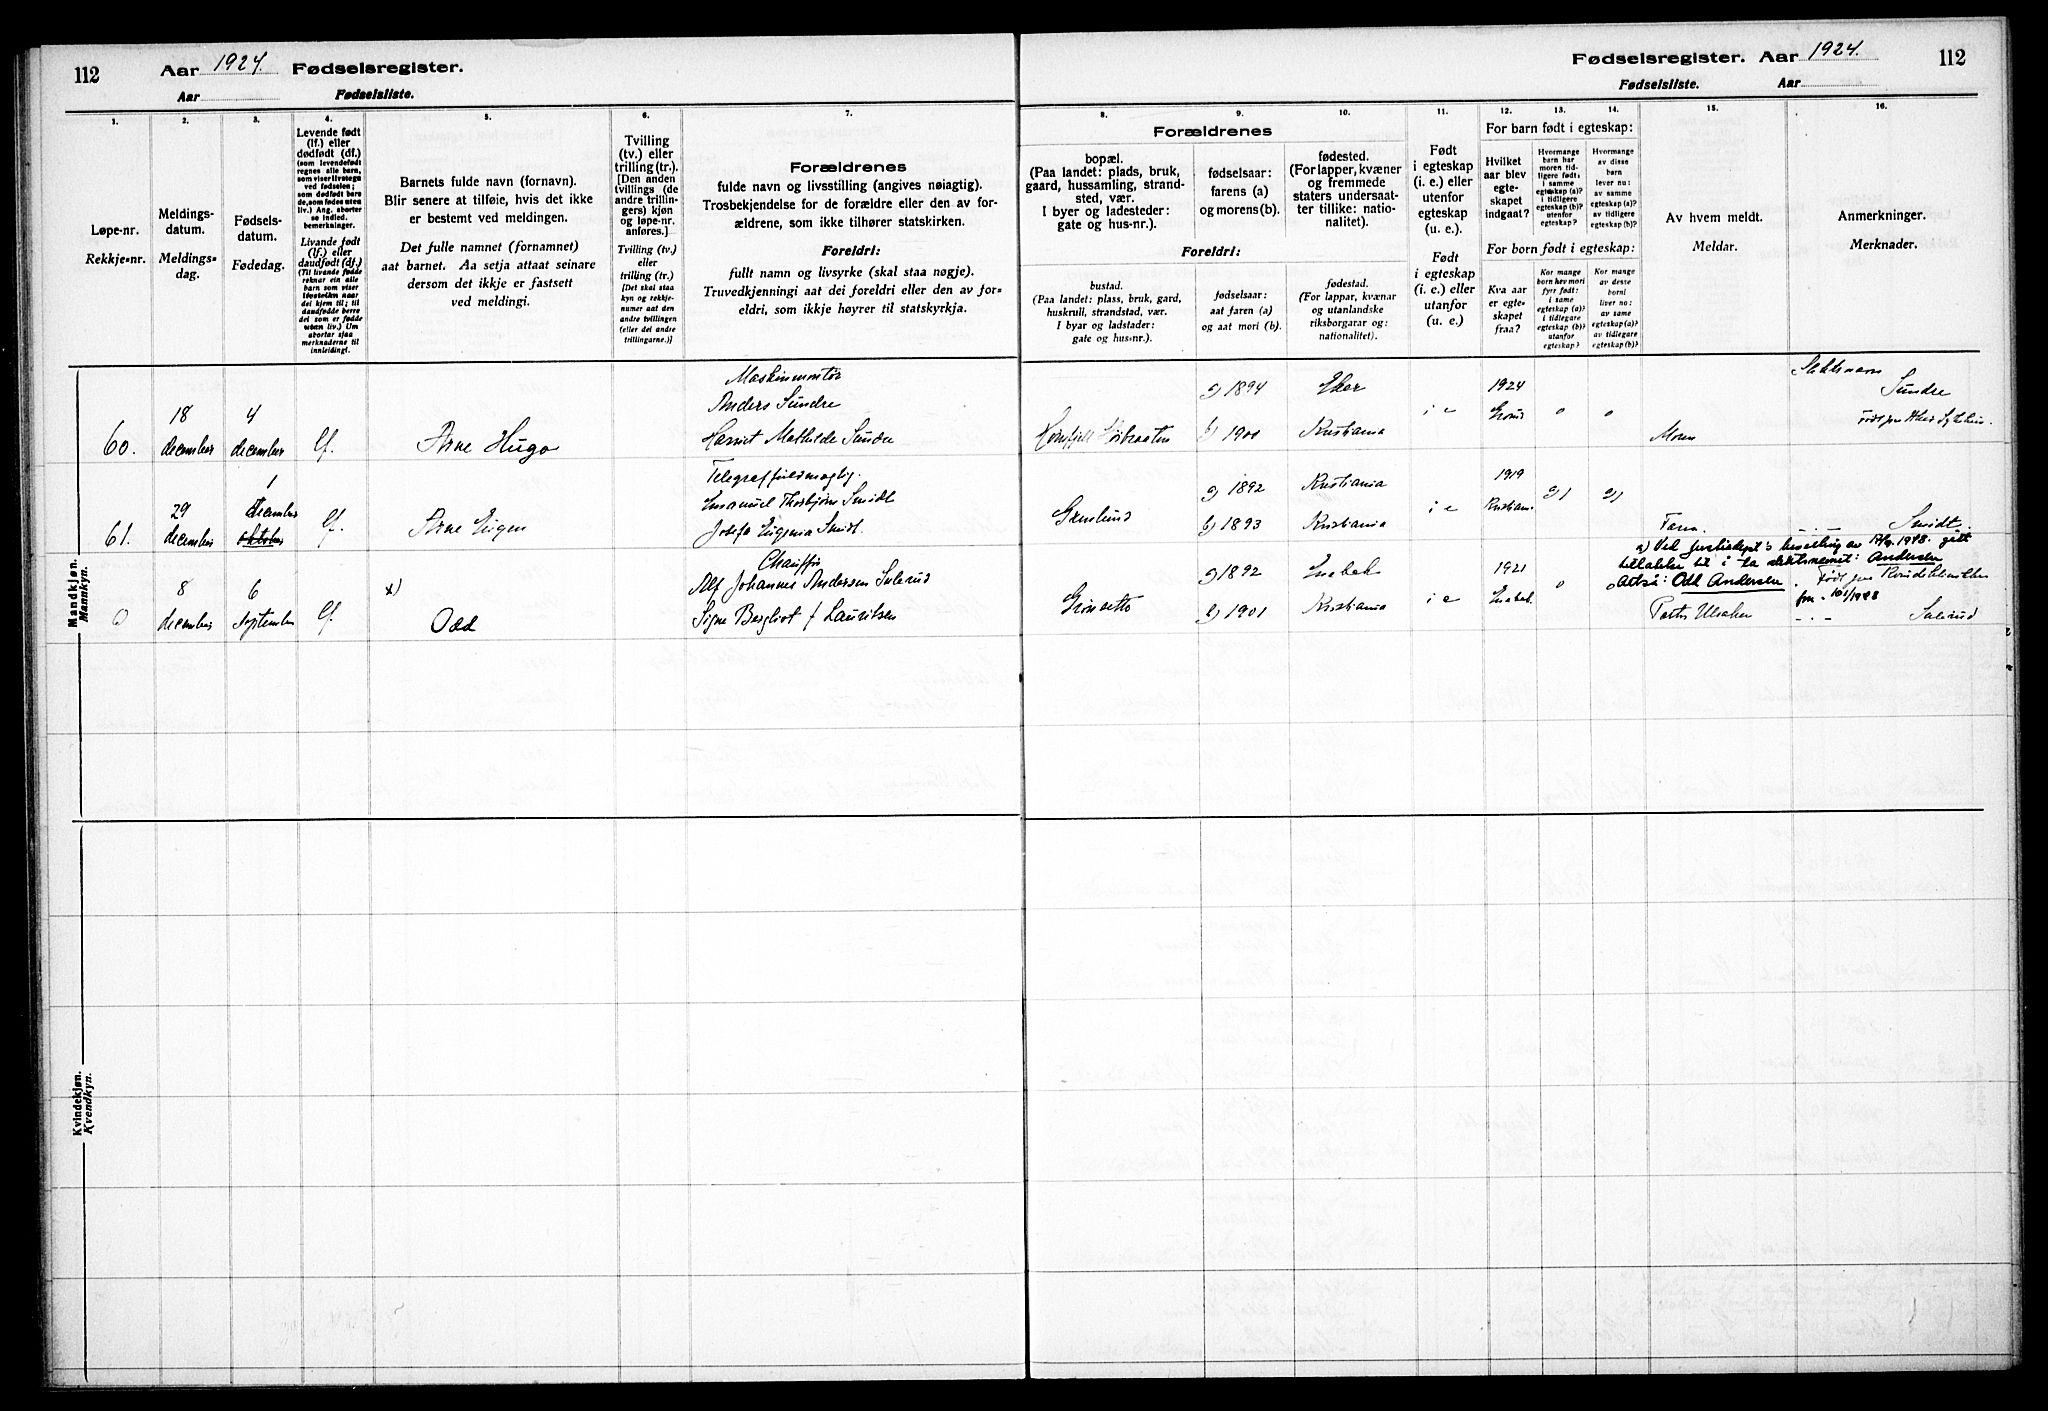 112
Aar 1924. Fødselsregister.
Aar Fødselsliste.
Fødselsregister. Aar 1924.
112
Fødselsliste. Aar
1.
Løpe-nr.
Rekkje-nr.
2.
Meldings-
datum.
Meldings-
dag.
3.
Fødsels-
datum.
Fødedag.
4.
Levende født
(lf.) eller
dødfødt (df.)
(som levendefødt
regnes alle barn,
som viser livstegn
ved fødselen;
som dødfødt bare
de, som fødes uten
liv.) Ang. aborter
se indled.
bemerkninger.
Livande født
(lf.) eller
daudfødt (df.)
(Til livande fødde
reknar ein alle
barn som viser
livsteikn naar
dei kjem til; til
daudfødde berre
dei som er fødde
uten liv.) Um
abortar sjaa
merknaderne til
innleiding).
5.
Barnets fulde navn (fornavn).
Blir senere at tilføie, hvis det ikke
er bestemt ved meldingen.
Det fulle namnet (fornamnet)
aat barnet. Aa setja attaat seinare
dersom det ikkje er fastsett
ved meldingi.
6.
Tvilling
(tv.) eller
trilling (tr.)
[Den anden
tvillings (de
andre trillin-
gers) kjøn
og løpe-nr.
anføres.]
Tvilling (tv.)
eller
trilling (tr.)
[Det skal staa
kyn og rekkje-
numer aat den
andre tvillingen
(eller dei andre
trillingarne.)]
7.
Forældrenes
fulde navn og livsstilling (angives nøiagtig).
Trosbekjendelse for de forældre eller den av for-
ældrene, som ikke tilhører statskirken.
Foreldri:
fullt namn og livsyrke (skal staa nøgje).
Truvedkjenningi aat dei foreldri eller den av for-
eldri, som ikkje høyrer til statskyrkja.
Forældrenes
8.
bopæl.
(Paa landet: plads, bruk,
gaard, hussamling, strand-
sted, vær.
I byer og ladesteder:
gate og hus-nr.).
9.
fødselsaar:
farens (a)
og morens (b).
10.
fødested.
(For lapper, kvæner
og fremmede
staters undersaat-
ter tillike: natio-
nalitet).
Foreldri:
bustad.
(Paa landet: plass, bruk, gard,
huskrull, strandstad, vær.
I byar og ladstader:
gate og hus-nr.).
fødselsaar:
aat faren (a)
og aat mori (b).
fødestad.
(For lappar, kvænar
og utanlandske
riksborgarar og:
nationalitet).
11.
Født
i egteskap
(i. e.) eller
utenfor
egteskap
(u. e.).
Født
i egteskap
(i. e.) eller
utanfor
egteskap
(u. e.).
For barn født i egteskap:
12.
Hvilket
aar blev
egte-
skapet
indgaat?
13.
Hvormange
barn har
moren tid-
ligere født:
i samme
egteskap (a)?
i tidligere
egteskap (b)?
utenfor
egteskap?
14.
Hvormange
av disse
barn
lever nu:
av samme
egteskap (a)?
av tidligere
egteskap (b)?
For born født i egteskap:
Kva aar
er egte-
skapet
fraa?
Kor mange
born hev mori
fyrr født:
i same
egteskap (a)?
i tidlegare
egteskap (b)?
utanfor
egteskap?
Kor mange
av desse
borni
liver no:
av same
egteskap (a)?
av tidlegare
egteskap (b)?
15.
Av hvem meldt.
Meldar.
16.
Anmerkninger.
Merknader.
Mandkjøn.
Mannkyn.
60.
18
december
4
december
lf.
Arne Hugo
Maskinmontør
Anders Sundre
Harriet Mathilde Sundre
a) 1894
b) 1900
Eker
Kristiania
i e
1924
"
"
Moren
Sundre
61.
29
december
1
december
oktober
lf.
Arne Eugen
Emanuel Thorbjørn Smidt
Josefa Eugenia Smidt.
Grønlund
a) 1892
b) 1893
Kristiania
Kristiania
i e
1919
Kristiania
Faren
Smidt.
8
december
6
september
lf.
x)
Odd
Chauffør
Alf Johannes Andersen Sulerud
Signe Bergliot f Lauritsen
a) 1892
b) 1901
Enebak
Kristiania
i e
1921
Eneb.
"
tillatelse til å ta slektsnavnet: Andersen
Altså: Odd Andersen.
Sulerud
Kvindekjøn.
Kvendkyn.